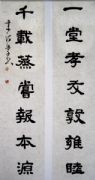 一堂孝友敦雍睦
千載蒸嘗報本源